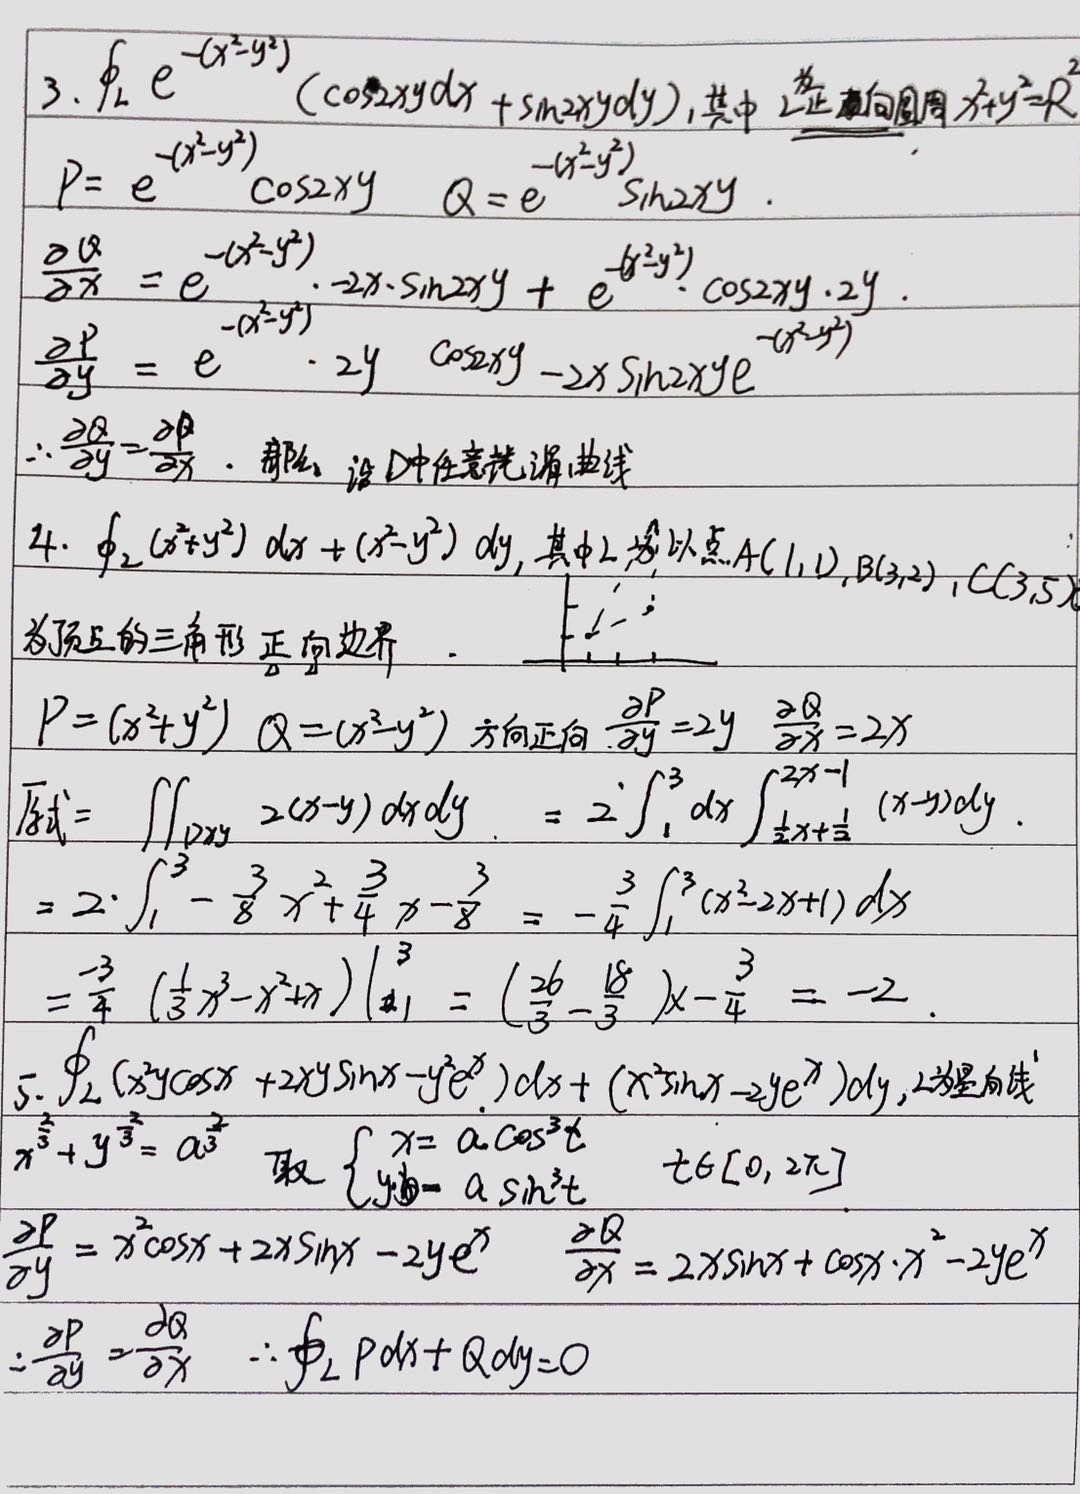 3. ∮_L e^{-(x²-y²)} (cos2xydx + sin2xydy), 其中 L为正向圆周 x²+y²=R²
P = e^{-(x²-y²)} cos2xy Q = e^{-(x²-y²)} sin2xy .
∂Q/∂x = e^{-(x²-y²)} · -2x · sin2xy + e^{-(x²-y²)} · cos2xy · 2y .
∂P/∂y = e^{-(x²-y²)} · 2y cos2xy - 2x sin2xy e^{-(x²-y²)}
∴ ∂Q/∂y = ∂P/∂x . 那么 设D中任意光滑曲线
4. ∮_L (x²+y²) dx + (x²-y²) dy, 其中L为以点A(1,1), B(3,2), C(3,5)
为顶点的三角形正向边界 .
P = (x²+y²) Q = (x²-y²) 方向正向 ∂P/∂y = 2y ∂Q/∂x = 2x
原式 = ∬_{Dxy} 2(x-y) dxdy . = 2·∫_1^3 dx ∫_{½x+½}^{2x-1} (x-y)dy .
= 2·∫_1^3 - 3/8 x² + 3/4 x - 3/8 = - 3/4 ∫_1^3 (x²-2x+1) dx
= -3/4 (1/3 x³ - x² + x) |_1^3 = (26/3 - 18/3) x - 3/4 = -2 .
5. ∮_L (x²ycosx + 2xysinx - y²e^x) dx + (x²sinx - 2ye^x) dy, L为星向线
x^{2/3} + y^{2/3} = a^{2/3} 取 { x = a cos³t
y = a sin³t t∈[0, 2π]
∂P/∂y = x²cosx + 2xsinx - 2ye^x ∂Q/∂x = 2xsinx + cosx · x² - 2ye^x
∴ ∂P/∂y = ∂Q/∂x ∴ ∮_L Pdx + Qdy = 0